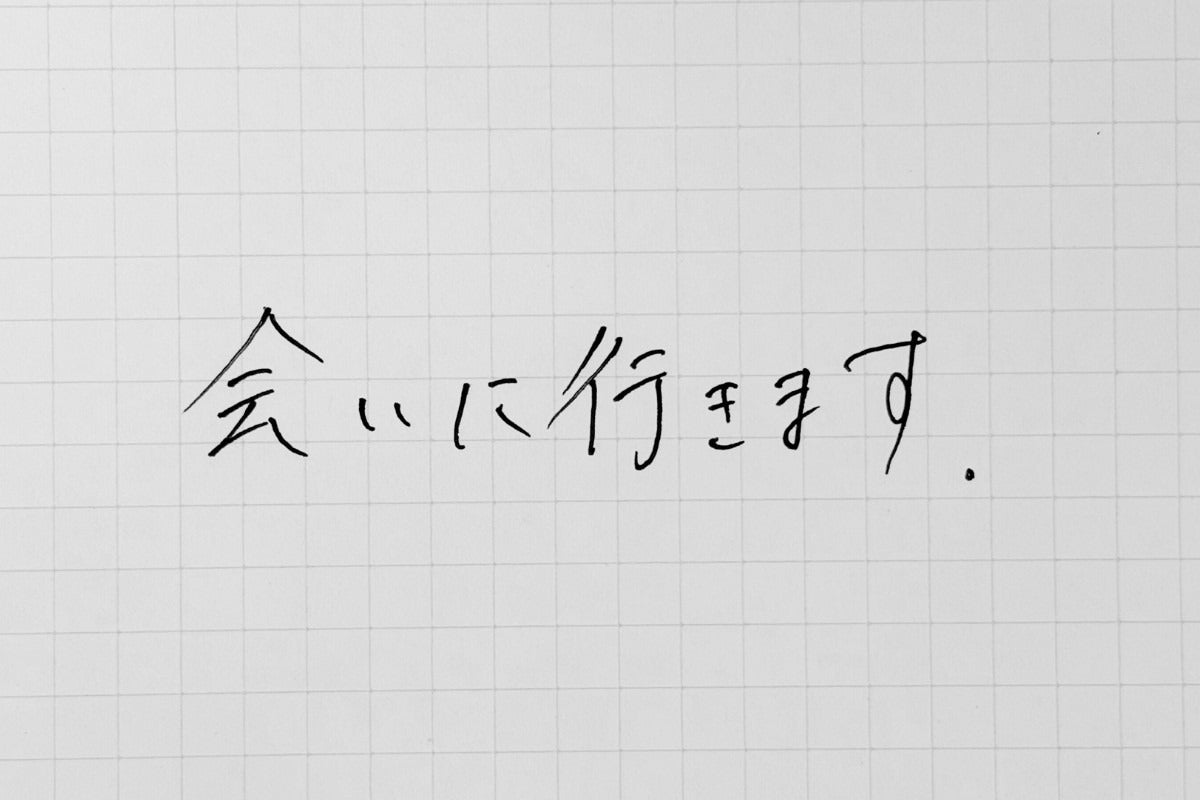 会いに行きます.